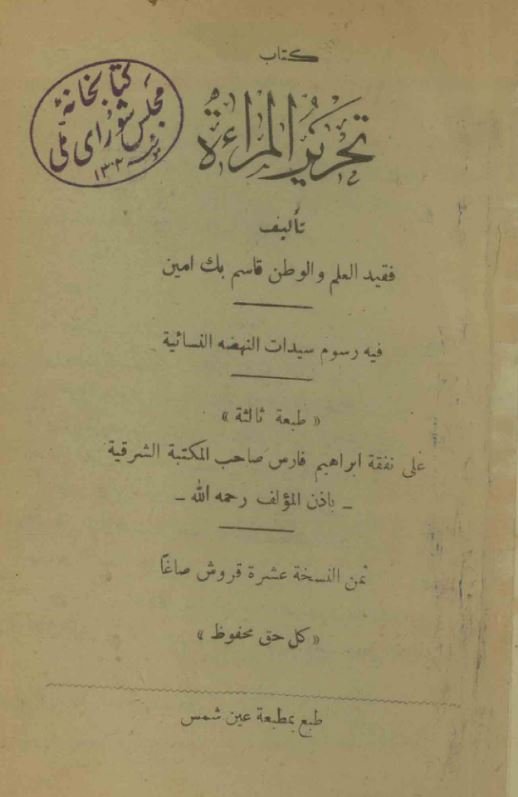 كتاب
تحرير المرأة
تأليف
فقيد العلم والوطن قاسم بك امين
فيه رسوم سيدات النهضه النسائية
« طبعة ثالثة »
على نفقة ابراهيم فارس صاحب المكتبة الشرقية
ـ باذن المؤلف رحمه الله ـ
ثمن النسخة عشرة قروش صاغًا
« كل حق محفوظ »
طبع بمطبعة عين شمس
كتابخانهٔ
مجلس شورای ملی